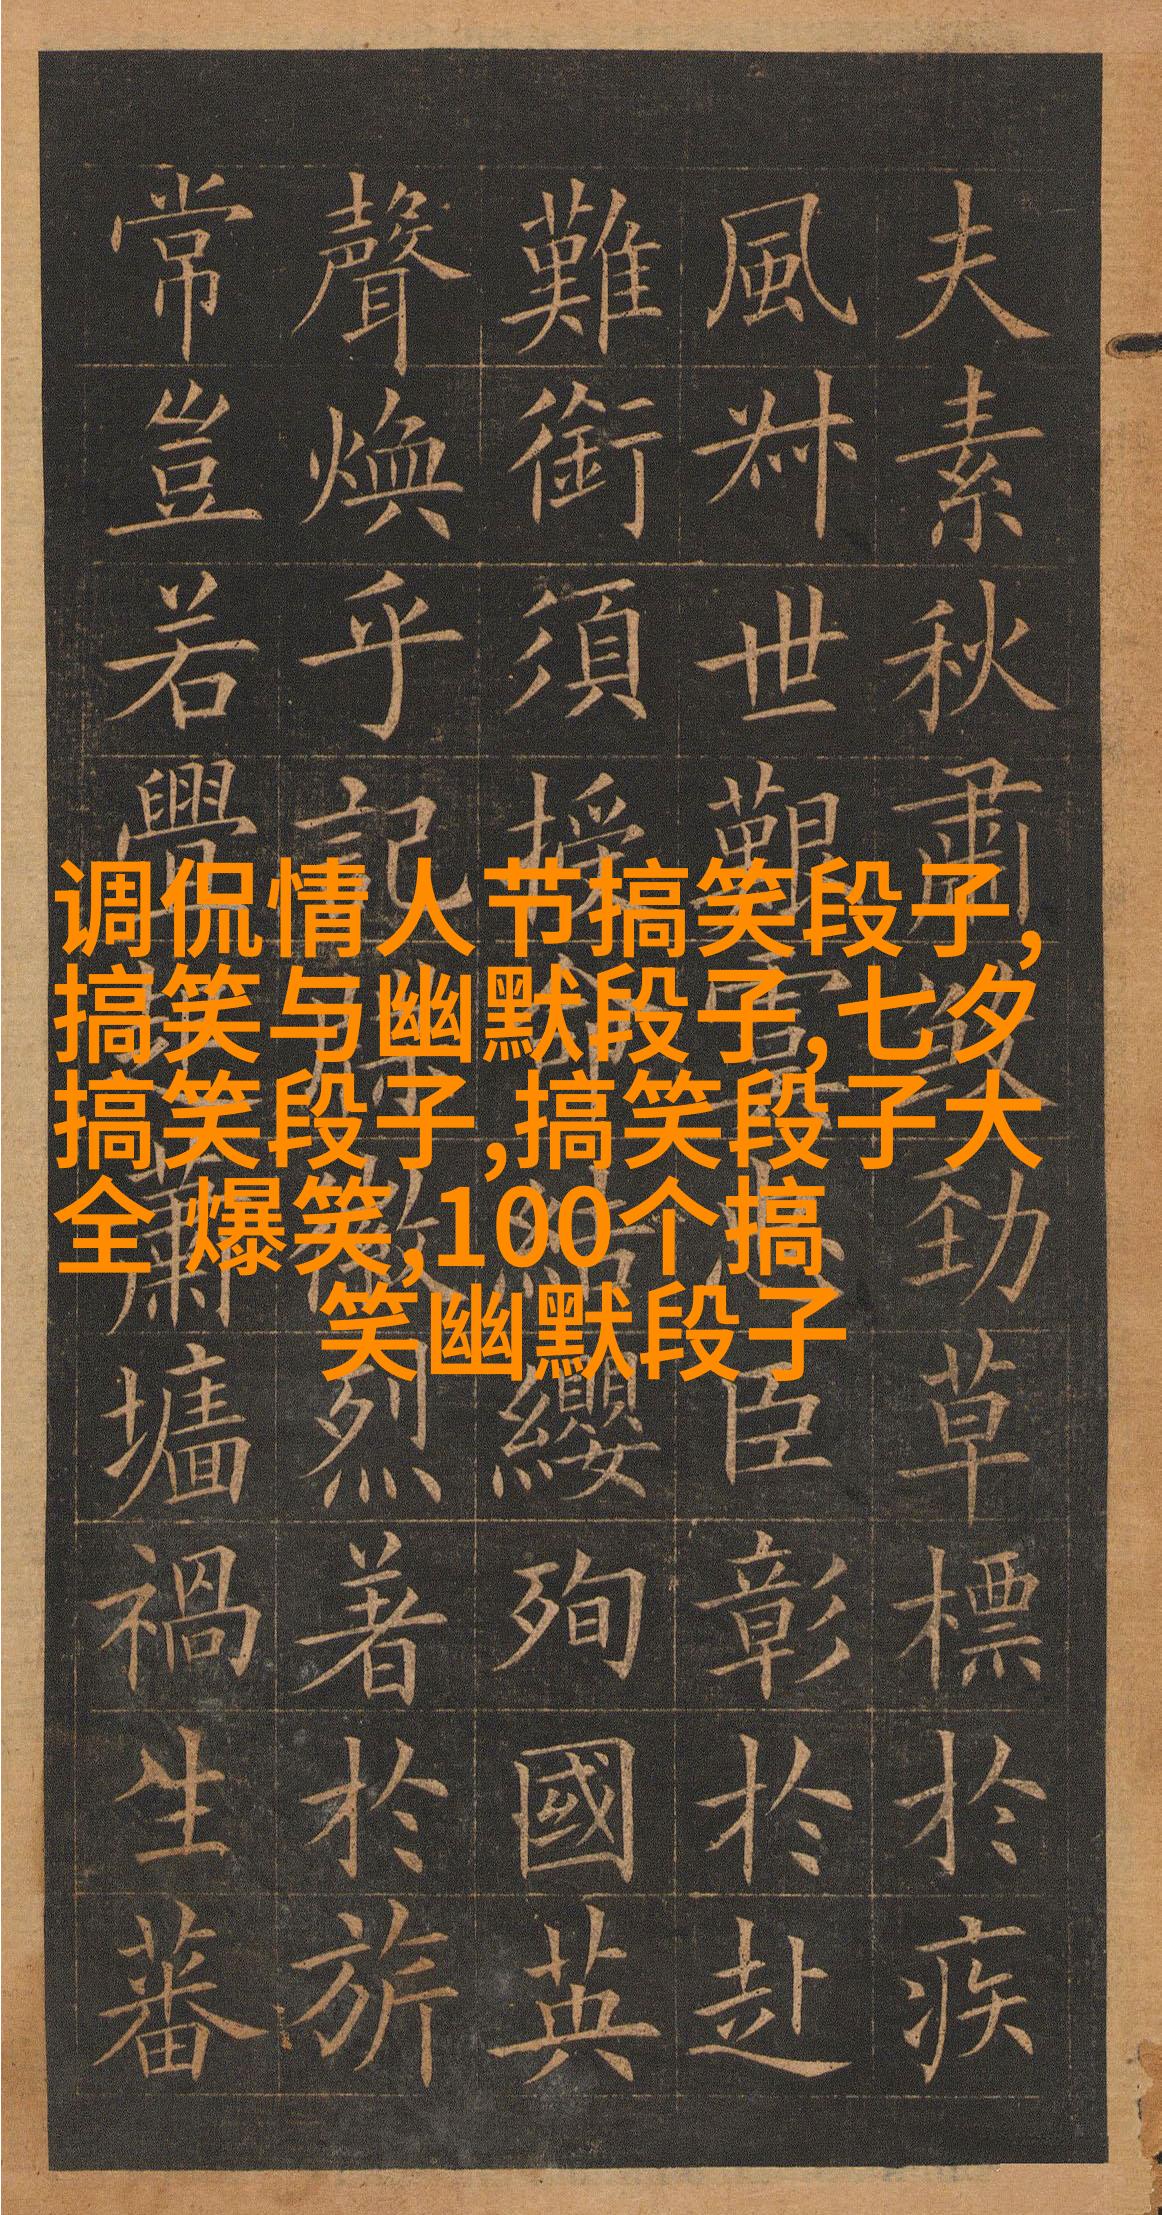 夫素秋肅勁草標於疾
風叔世艱臣彰於赴
難銜須授纓殉國英
聲煥乎記烈著於旂
常豈若蕭墻禍生蕃
调侃情人节搞笑段子,
搞笑与幽默段子,七夕
搞笑段子,搞笑段子大
全 爆笑,100个搞
笑幽默段子